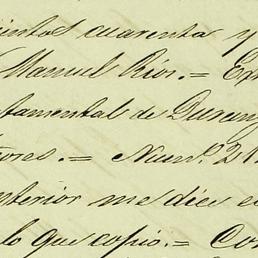 cuarenta y
Manuel Rios.=
tamental de Durang
ores.= Num.º 21
nterior me dice e
lo que copio.= Co